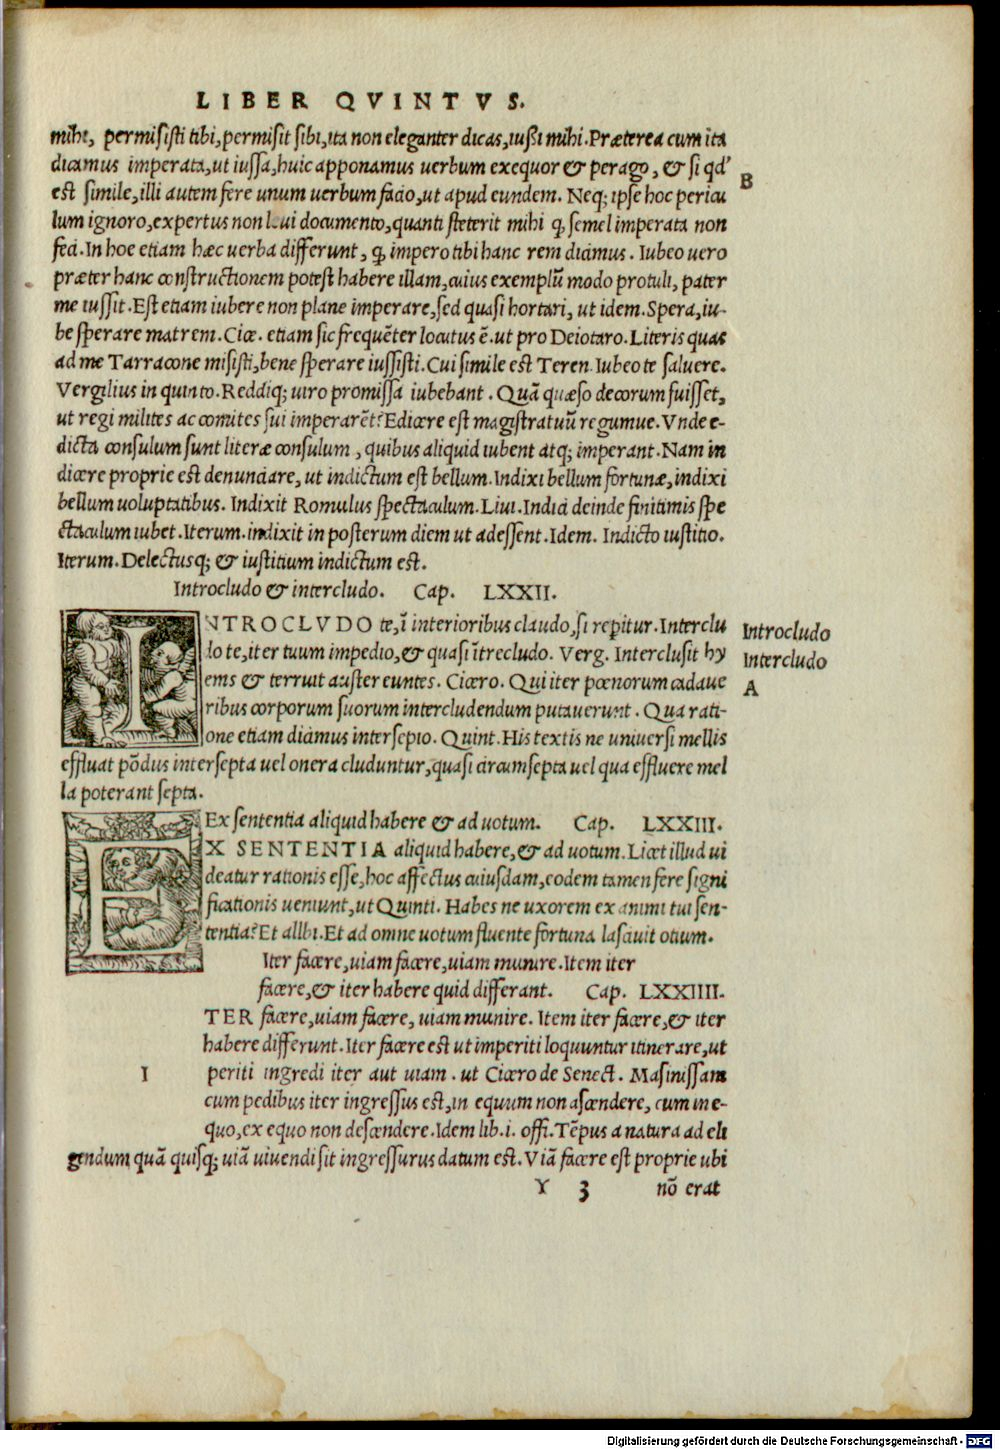 LIBER QVINTVS.
mihi, permisisti tibi, permisit sibi, ita non eleganter dicas, iußi mihi. Præterea cum ita
dicamus imperata, ut iussa, huic apponamus uerbum exequor & perago, & si qd'
B
est simile, illi autem fere unum uerbum facio, ut apud eundem. Neq; ipse hoc pericu
lum ignoro, expertus non leui documento, quanti steterit mihi ꝙ semel imperata non
feci. In hoc etiam hæc uerba differunt, ꝙ impero tibi hanc rem dicimus. Iubeo uero
præter hanc constructionem potest habere illam, cuius exemplũ modo protuli, pater
me iussit. Est etiam iubere non plane imperare, sed quasi hortari, ut idem. Spera, iu-
be sperare matrem. Cic. etiam sic frequẽter locutus ẽ. ut pro Deiotaro. Literis quas
ad me Tarracone misisti, bene sperare iussisti. Cui simile est Teren. Iubeo te saluere.
Vergilius in quinto. Reddiq; uiro promissa iubebant. Quã quæso decorum fuisset,
ut regi milites ac comites sui imperarẽt? Edicere est magistratuũ regumue. Vnde e-
dicta consulum sunt literæ consulum, quibus aliquid iubent atq; imperant. Nam in
dicere proprie est denunciare, ut indictum est bellum. Indixi bellum fortunæ, indixi
bellum uoluptatibus. Indixit Romulus spectaculum. Liui. Indici deinde finitimis spe
ctaculum iubet. Iterum. indixit in posterum diem ut adessent. Idem. Indicto iustitio.
Iterum. Delectusq; & iustitium indictum est.
Introcludo & intercludo. Cap. LXXII.
INTROCLVDO te, ĩ interioribus claudo, si repitur. Interclu
Introcludo
do te, iter tuum impedio, & quasi ĩtrecludo. Verg. Interclusit hy
Intercludo
ems & terruit auster euntes. Cicero. Qui iter pœnorum cadaue
A
ribus corporum suorum intercludendum putauerunt. Qua rati-
one etiam dicimus intersepio. Quint. His textis ne uniuersi mellis
effluat põdus intersepta uel onera cluduntur, quasi circumsepta uel qua effluere mel
la poterant septa.
Ex sententia aliquid habere & ad uotum. Cap. LXXIII.
EX SENTENTIA aliquid habere, & ad uotum. Licet illud ui
deatur rationis esse, hoc affectus cuiusdam, eodem tamen fere signi
ficationis ueniunt, ut Quinti. Habes ne uxorem ex animi tui sen-
tentia? Et alibi. Et ad omne uotum fluente fortuna lasciuit otium.
Iter facere, uiam facere, uiam munire. Item iter
facere, & iter habere quid differant. Cap. LXXIIII.
TER facere, uiam facere, uiam munire. Item iter facere, & iter
habere differunt. Iter facere est ut imperiti loquuntur itinerare, ut
I periti ingredi iter aut uiam. ut Cicero de Senect. Masinissam
cum pedibus iter ingressus est, in equum non ascendere, cum in e-
quo, ex equo non descendere. Idem lib. i. offi. Tẽpus a natura ad eli
gendum quã quisq; uiã uiuendi sit ingressurus datum est. Viã facere est proprie ubi
Y 3 nõ erat
Digitalisierung gefördert durch die Deutsche Forschungsgemeinschaft - DFG